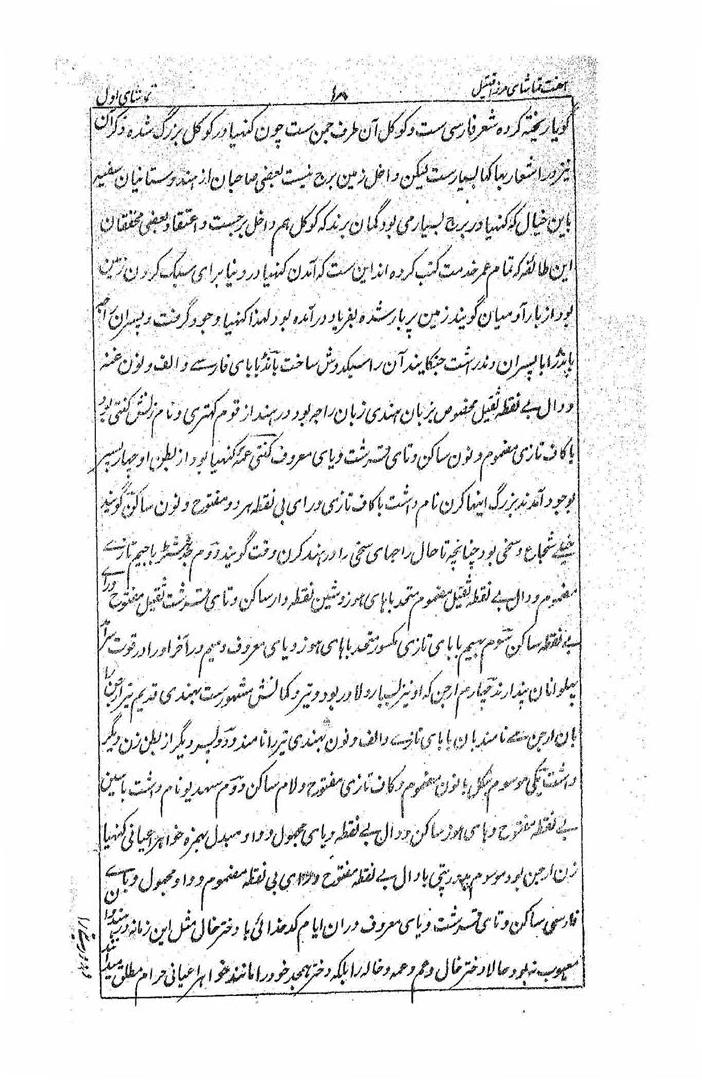 هفت تماشای مرزا قتیل
۱۸
تماشای اول
گویا ریخته کرده شعر فارسی ست و گوکل آن طرف جمن ست چون کنهیا در گوکل بزرگ شده ذکر آن
نیز در اشعار بهاکها بسیارست لیکن داخل زمین برج نیست بعضی صاحبان از هندوستانیان سفیه
باین خیال که کنهیا در برج بسیار می بود گمان برند که گوکل هم داخل برجست و اعتقاد بعضی محققان
این طائفه که تمام عمر خدمت کتب کرده اند این ست که آمدن کنهیا در دنیا برای سبک کردن زمین
بود از بار آدمیان گویند زمین پر بار شده بفریاد درآمده بود لهذا کنهیا وجود گرفت و پسران راجه
پانڈ را با پسران دندر اشت جنگانید آن را سبکدوش ساخت پانڈ با بای فارسے و الف و نون غنه
و دال بے نقطه ثقیل مخصوص بزبان هندی زبان راجه بود در هند از قوم کهتری و نام زنش کنتی بود
با کاف تازی مضموم و نون ساکن و تای قرشت و یای معروف کنتی عمۀ کنهیا بود از بطن او چهار پسر
بوجود آمدند بزرگ اینها کرن نام داشت با کاف تازی و رای بی نقطه هر دو مفتوح و نون ساکن گویند
خیلے شجاع و سخی بود چنانچه تا حال راجهای سخی را در هند کرن وقت گویند دوم جدهشتر با جیم تازے
مضموم و دال بے نقطه ثقیل مضموم متحد باهای هوز و شین نقطه دار ساکن و تای قرشت ثقیل مفتوح و رای
بے نقطه ساکن سوم بهیم با بای تازی مکسور متحد باهای هوز و یای معروف و میم در آخر او را در قوت سرآمد
پهلوانان پندارند چهارم ارجن که او نیز بسیار دلاور بود و تیر و کمانش مشهورست بهندی قدیم تیر ارجن را
بان ارجن مے نامند بان با بای تازے و الف و نون بهندی تیر را نامند و دو پسر دیگر از بطن زن دیگر
داشت یکی موسوم بنکل با نون مضموم و کاف تازی مفتوح و لام ساکن دوم سهدیو نام داشت با سین
بے نقطه مفتوح و های هوز ساکن و دال بے نقطه و یای مجهول و واو مبدل بهمزه خواهر اعیانی کنهیا
زن ارجن بود موسوم بدروپتی با دال بے نقطه مفتوح و رای بی نقطه مضموم و واو مجهول و بای
فارسی ساکن و تای قرشت و یای معروف دران ایام کدخدائی با دختر خال مثل این زمانه در هندوان
معیوب نبود و حالا دختر خال و عم و عمه و خاله را بلکه دختر همجد خود را مانند خواهر اعیانی حرام مطلق میدانند